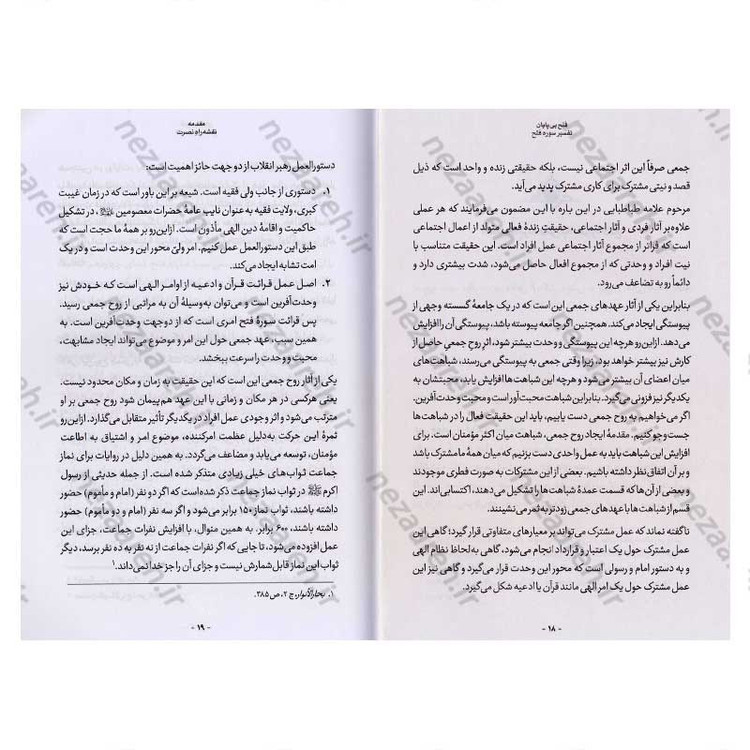 فتح بی‌پایان
تفسیر سوره فتح
جمعی صرفاً این اثر اجتماعی نیست، بلکه حقیقتی زنده و واحد است که ذیل
قصد و نیتی مشترک برای کاری مشترک پدید می‌آید.
مرحوم علامه طباطبایی در این باره با این مضمون می‌فرمایند که هر عملی
علاوه‌بر آثار فردی و آثار اجتماعی، حقیقتِ زندۀ فعالی متولد از اعمال اجتماعی
است که فراتر از مجموع آثار اجتماعی عمل افراد است. این حقیقت متناسب با
نیت افراد و وحدتی که از مجموع افعال حاصل می‌شود، شدت بیشتری دارد و
دائماً رو به تضاعف می‌رود.
بنابراین یکی از آثار عهدهای جمعی این است که در یک جامعۀ گسسته وجهی از
پیوستگی ایجاد می‌کند. همچنین اگر جامعه پیوسته باشد، پیوستگی آن را افزایش
می‌دهد. ازاین‌رو هرچه این پیوستگی و وحدت بیشتر شود، اثرِ روحِ جمعیِ حاصل از
کارش نیز بیشتر خواهد بود، زیرا وقتی جمعی به پیوستگی می‌رسند، شباهت‌های
میان اعضای آن بیشتر می‌شود و هرچه این شباهت‌ها افزایش یابد، محبتشان به
یکدیگر نیز فزونی می‌گیرد. بنابراین شباهت محبت‌آور است و محبت وحدت‌آفرین.
اگر می‌خواهیم به روح جمعی دست یابیم، باید این حقیقت فعال را در شباهت‌ها
جست‌وجو کنیم. مقدمۀ ایجاد روح جمعی، شباهت میان اکثر مؤمنان است. برای
افزایش این شباهت باید به عمل واحدی دست بزنیم که میان همۀ ما مشترک باشد
و بر آن اتفاق‌نظر داشته باشیم. بعضی از این مشترکات به صورت فطری موجودند
و بعضی از آن‌ها که قسمت عمدۀ شباهت‌ها را تشکیل می‌دهند، اکتسابی‌اند. این
قسم از شباهت‌ها با عهدهای جمعی زودتر به ثمر می‌نشینند.
ناگفته نماند که عمل مشترک می‌تواند بر معیارهای متفاوتی قرار گیرد؛ گاهی این
عمل مشترک حول یک اعتبار و قرارداد انجام می‌شود، گاهی به‌لحاظ نظام الهی
و به دستور امام و رسولی است که محور این وحدت قرار می‌گیرد و گاهی نیز این
عمل مشترک حول یک امر الهی مانند قرآن یا ادعیه شکل می‌گیرد.
- ۱۸ -
مقدمه
نقشه راه نصرت
دستورالعمل رهبر انقلاب از دو جهت حائز اهمیت است:
۱. دستوری از جانب ولی فقیه است. شیعه بر این باور است که در زمان غیبت
کبری، ولایت فقیه به عنوان نایب عامۀ حضرات معصومین، در تشکیل
حاکمیت و اقامۀ دین الهی مأذون است. ازاین‌رو بر همۀ ما حجت است که
طبق این دستورالعمل عمل کنیم. امر ولیّ محور این وحدت است و در یک
امت تشابه ایجاد می‌کند.
۲. اصل عمل قرائت قرآن و ادعیه از اوامر الهی است که خودش نیز
وحدت‌آفرین است و می‌توان به‌وسیلۀ آن به مراتبی از روح جمعی رسید.
پس قرائت سورۀ فتح امری است که از دو جهت وحدت‌آفرین است. به
همین سبب، عهد جمعی حول این امر و موضوع می‌تواند ایجاد مشابهت،
محبت و وحدت را سرعت ببخشد.
یکی از آثار روح جمعی این است که این حقیقت به زمان و مکان محدود نیست.
یعنی هرکسی در هر مکان و زمانی با این عهد هم‌پیمان شود روح جمعی بر او
مترتب می‌شود و اثر وجودی عمل افراد در یکدیگر تأثیر متقابل می‌گذارد. ازاین‌رو
ثمرۀ این حرکت به‌دلیل عظمت امرکننده، موضوع امر و اشتیاق به اطاعت
مؤمنان، توسعه می‌یابد و مضاعف می‌گردد. به همین دلیل در روایات برای نماز
جماعت ثواب‌های خیلی زیادی متذکر شده است. از جمله حدیثی از رسول
اکرم ﷺ در ثواب نماز جماعت ذکر شده است که اگر دو نفر (امام و مأموم) حضور
داشته باشند، ثواب نماز ۱۵۰ برابر می‌شود و اگر سه نفر (امام و دو مأموم) حضور
داشته باشند، ۶۰۰ برابر. به همین منوال، با افزایش نفرات جماعت، جزای این
عمل افزوده می‌شود، تا جایی که اگر نفرات جماعت از نه نفر به ده نفر برسد، دیگر
ثواب این نماز قابل شمارش نیست و جزای آن را جز خدا نمی‌داند.¹
۱. بحارالأنوار، ج ۲، ص ۳۸۵.
- ۱۹ -
nezaareh.ir